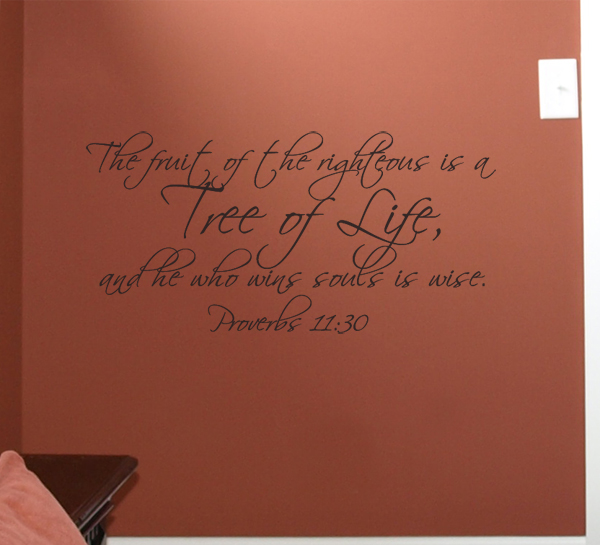 The fruit of the righteous is a
Tree of Life,
and he who wins souls is wise.
Proverbs 11:30